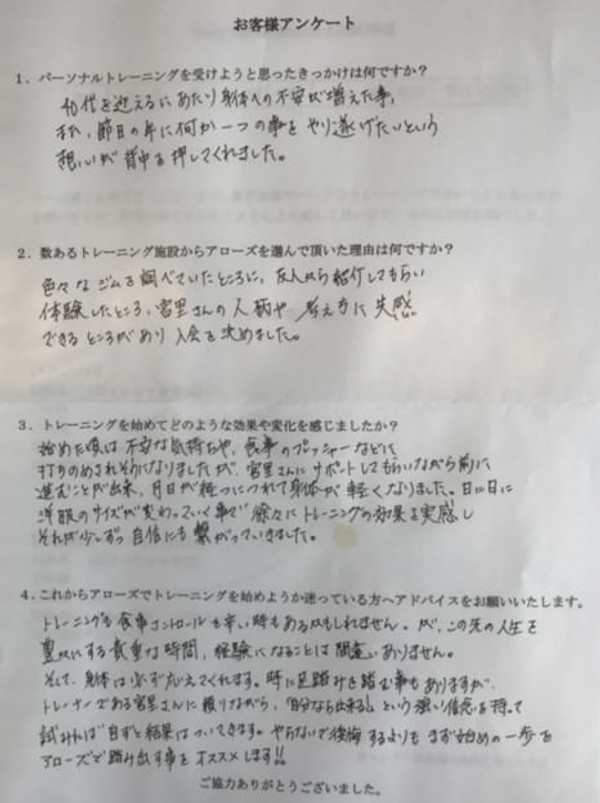 お客様アンケート
1．パーソナルトレーニングを受けようと思ったきっかけは何ですか？
40代を迎えるにあたり身体への不安が増えた事、
私、節目の年に何か一つの事をやり遂げたいという
想いが背中を押してくれました。
2．数あるトレーニング施設からアローズを選んで頂いた理由は何ですか？
色々なジムを調べていたところに、友人から紹介してもらい
体験したところ、宮里さんの人柄や考え方に共感
できるところがあり入会を決めました。
3．トレーニングを始めてどのような効果や変化を感じましたか？
始めた頃は不安な気持ちや、食事のプレッシャーなどに
打ちのめされそうになりましたが、宮里さんにサポートしてもらいながら前に
進むことが出来、月日が経つにつれて身体が軽くなりました。日に日に
洋服のサイズが変わっていく事で徐々にトレーニングの効果を実感し
それが少しずつ自信にも繋がっていきました。
4．これからアローズでトレーニングを始めようか迷っている方へアドバイスをお願いいたします。
トレーニングも食事コントロールも辛い時もあるかもしれません。が、この先の人生を
豊かにする貴重な時間、経験になることは間違いありません。
そして、身体は必ず応えてくれます。時に足踏みを踏む事もありますが、
トレーナーである宮里さんに頼りながら、「自分なら出来る！」という強い信念を持って
試みれば自ずと結果はついてきます。やらないで後悔するよりもまず始めの一歩を
アローズで踏み出す事をオススメします!!
ご協力ありがとうございました。